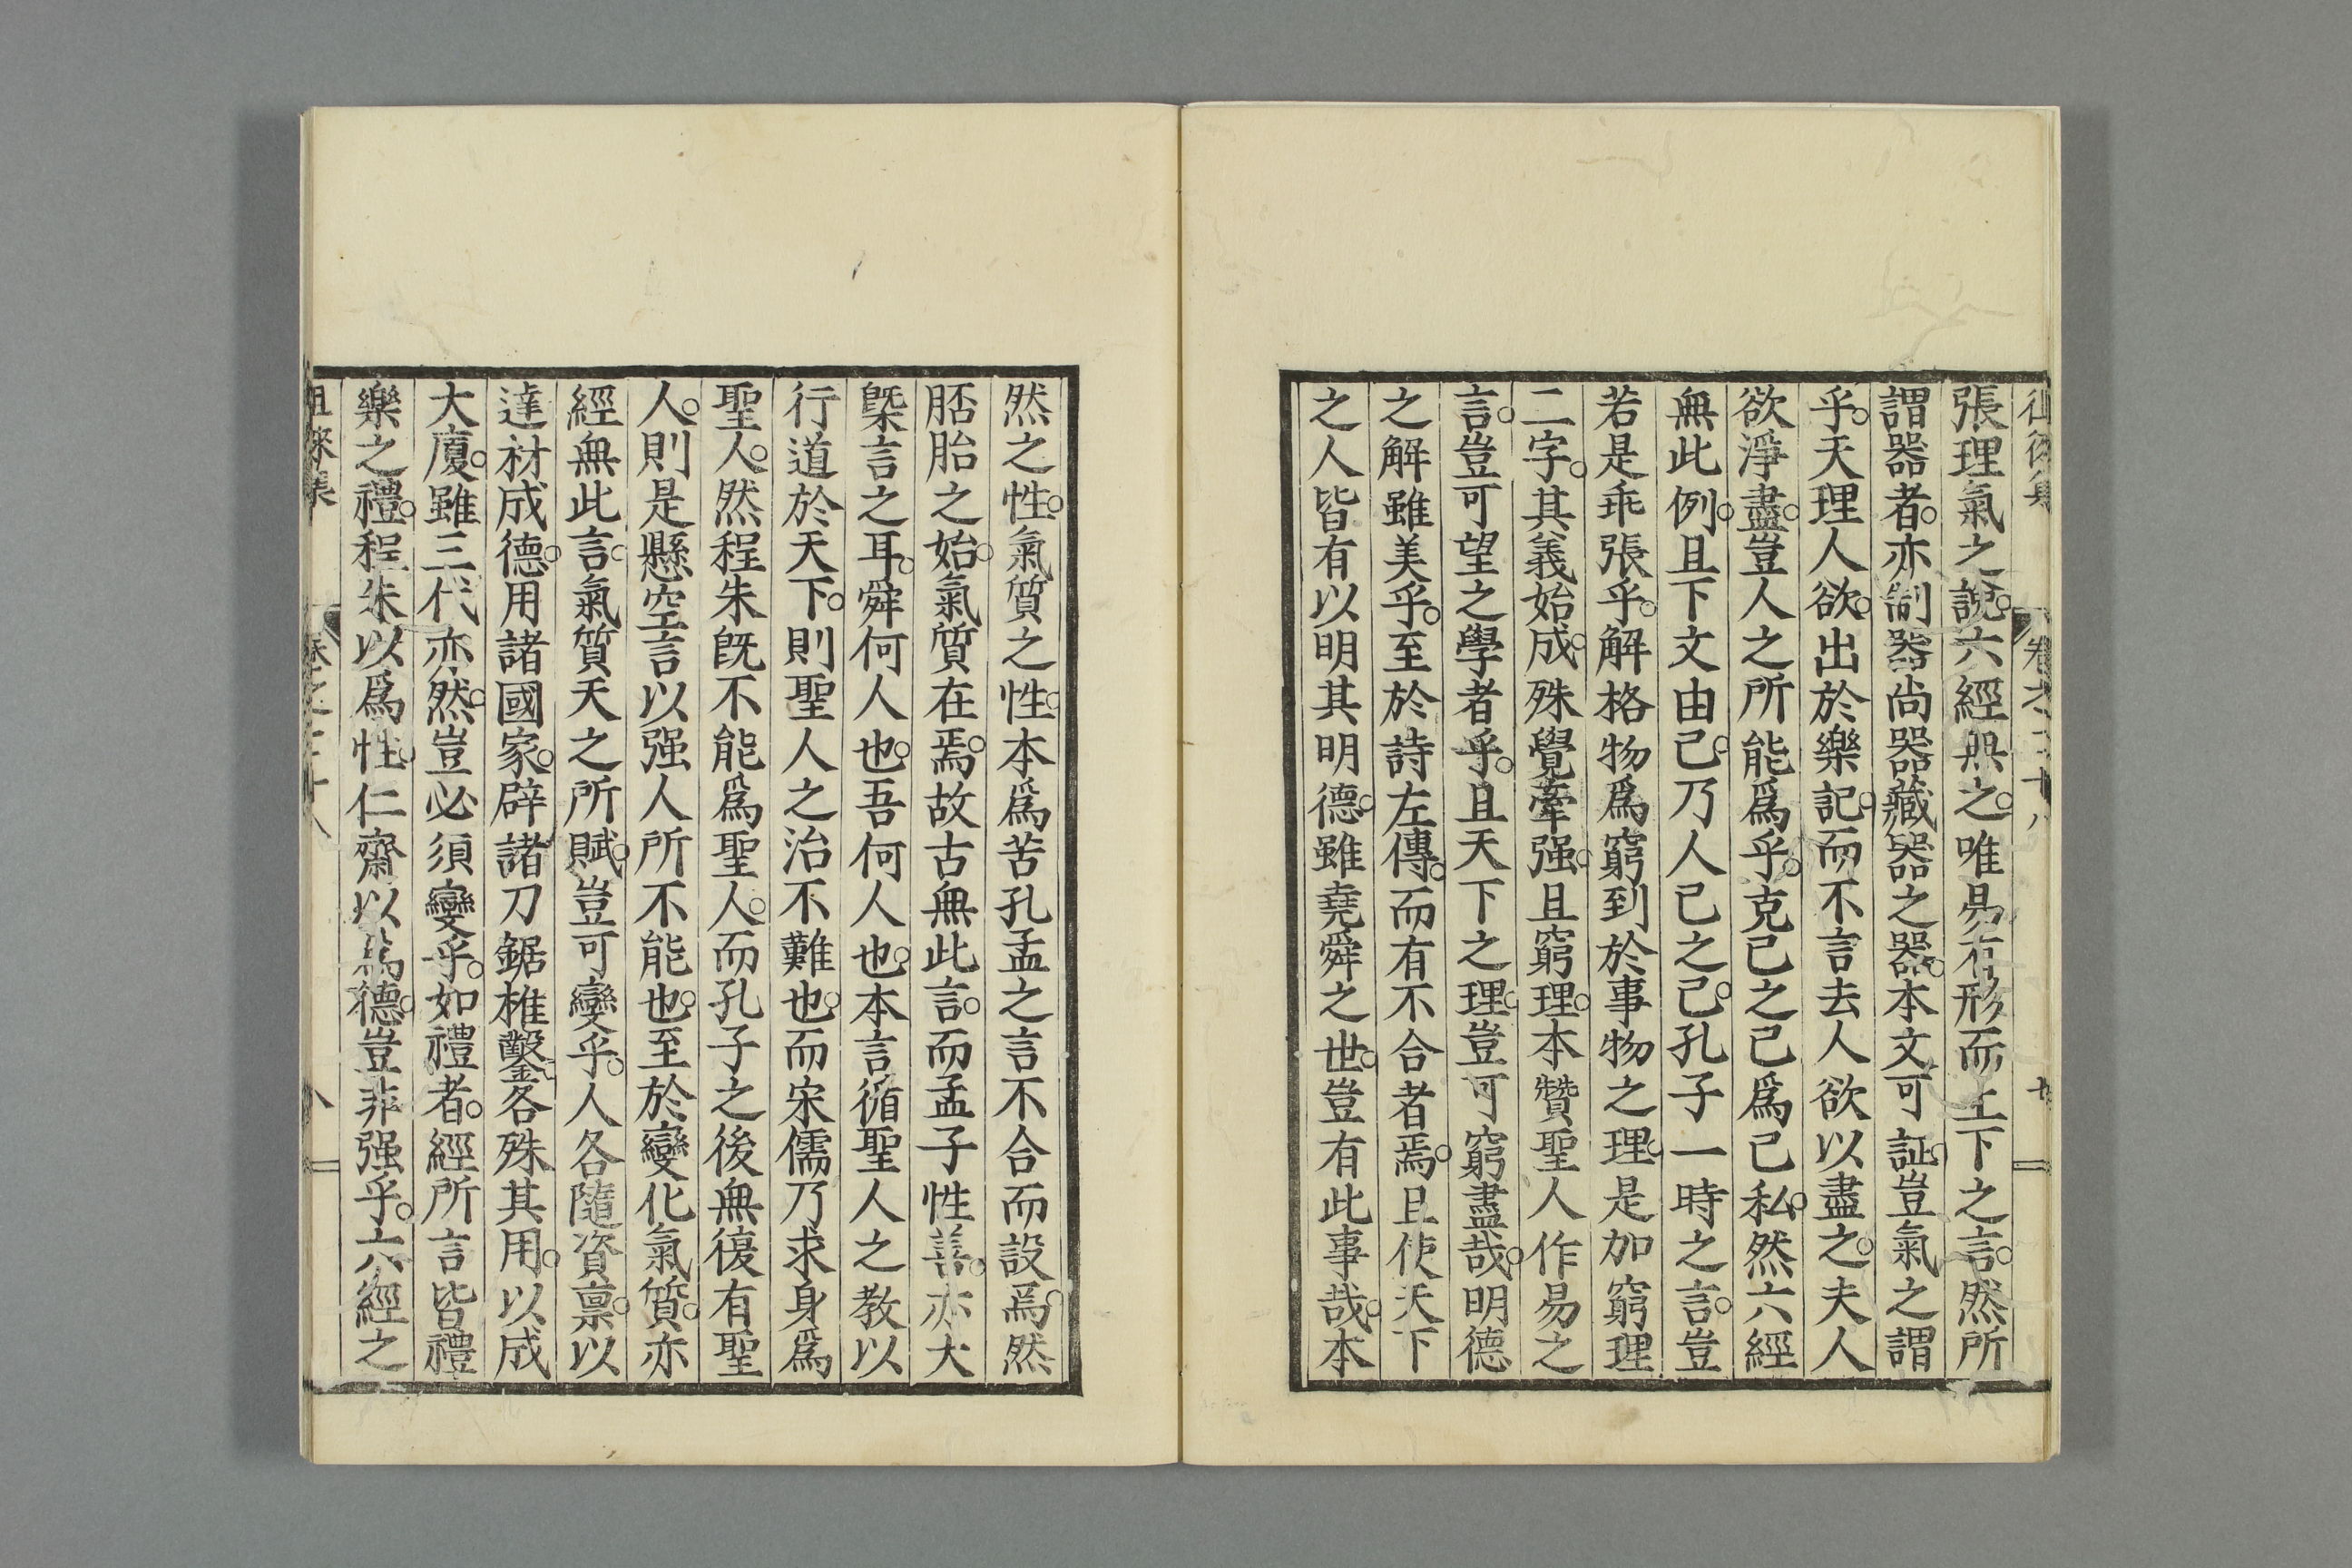 張理氣之說。六經無之。唯易有形而上下之言。然所
謂器者。亦制器尚器藏器之器。本文可証。豈氣之謂
乎。天理人欲。出於樂記。而不言去人欲以盡之。夫人
欲淨盡。豈人之所能爲乎。克己之己爲己私。然六經
無此例。且下文由己。乃人己之己。孔子一時之言。豈
若是乖張乎。解格物爲窮到於事物之理。是加窮理
二字。其義始成。殊覺牽强。且窮理。本贊聖人作易之
言。豈可望之學者乎。且天下之理。豈可窮盡哉。明德
之解雖美乎。至於詩左傳。而有不合者焉。且使天下
之人皆有以明其明德。雖堯舜之世。豈有此事哉。本
然之性。氣質之性。本爲苦孔孟之言不合而設焉。然
胚胎之始。氣質在焉。故古無此言。而孟子性善。亦大
槩言之耳。舜何人也。吾何人也。本言循聖人之教以
行道於天下。則聖人之治不難也。而宋儒乃求身爲
聖人。然程朱旣不能爲聖人。而孔子之後無復有聖
人。則是懸空言以强人所不能也。至於變化氣質。亦
經無此言。氣質天之所賦。豈可變乎。人各隨資禀。以
達材成德。用諸國家。辟諸刀鋸椎鑿。各殊其用。以成
大廈。雖三代亦然。豈必須變乎。如禮者。經所言皆禮
樂之禮。程朱以爲性。仁齋以爲德。豈非强乎。六經之
徂徠集 卷之二十八 八